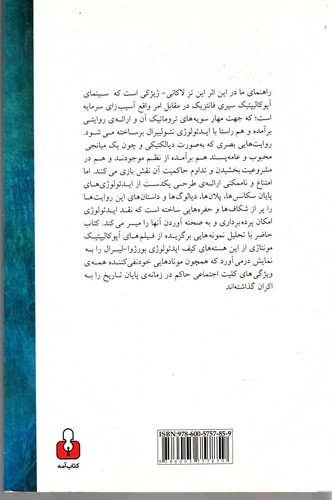 راهنمای ما در این اثر این تز لاکانی- ژیژکی است که سینمای
آپوکالیپتیک سپری فانتزیک در مقابل امر واقع آسیب‌زای سرمایه
است که جهت مهار سویه‌های تروماتیک آن و ارائه‌ی روایتی
برآمده و هم راستا با ایدئولوژی نئولیبرال برساخته می شود.
روایت‌هایی بصری که به‌صورت دیالکتیکی و چون یک میانجی
محبوب و عامه‌پسند هم برآمده از نظم موجودند و هم در
مشروعیت‌بخشیدن و تداوم حاکمیت آن نقش بازی می کنند. اما
امتناع و ناممکنی ارائه‌ی طرحی یکدست از ایدئولوژی‌های
پایان سکانس‌ها، پلان‌ها، دیالوگ‌ها و داستان‌های این روایت‌ها
را پر از شکاف‌ها و حفره‌هایی ساخته است که نقد ایدئولوژی
امکان پرده‌برداری و به صحنه آوردن آنها را میسر می‌کند. کتاب
حاضر با تحلیل نمونه‌هایی برگزیده از فیلم‌های آپوکالیپتیک
مونتاژی از این هسته‌های کیف ایدئولوژی بورژوا-لیبرال را به
نمایش درمی‌آورد که همچون مونادهایی خودنفی‌کننده همه‌ی
ویژگی‌های کلیت اجتماعی حاکم در زمانه‌ی پایان تاریخ را به
اکران گذاشته‌اند
ISBN:978-600-5757-85-9
9786005757859
کتاب آمه